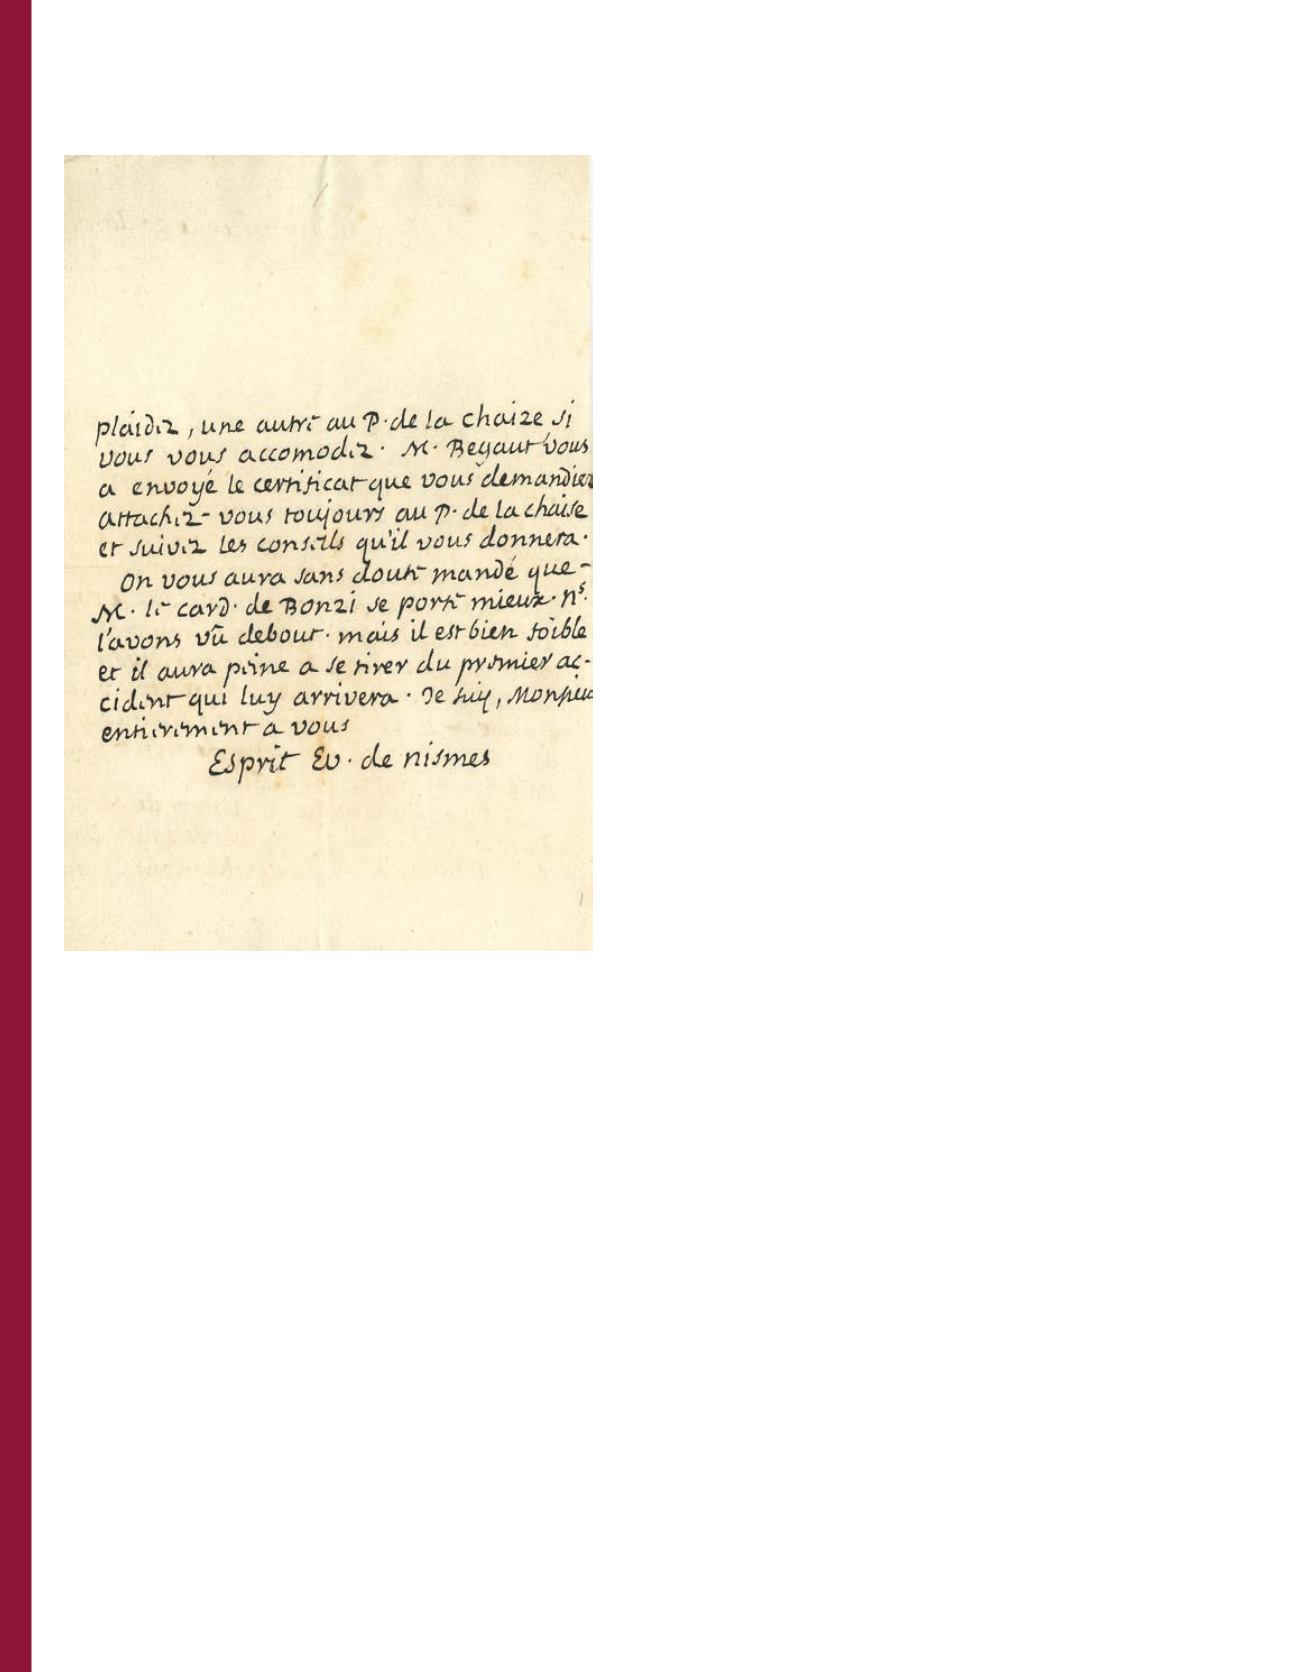 plaidez, une autre au P. de la chaize si
vous vous accomodez. M. Begaut vous
a envoyé le certificat que vous demandiez
attachez-vous toujours au P. de la chaise
et suivez les conseils qu'il vous donnera.
On vous aura sans doute mandé que
M. le card. de Bonzi se porte mieux. ns.
l'avons vû debout. mais il est bien foible
et il aura peine a se tirer du premier ac-
cident qui luy arrivera. Je suy, Monsieu
entierement a vous
Esprit Ev. de nismes